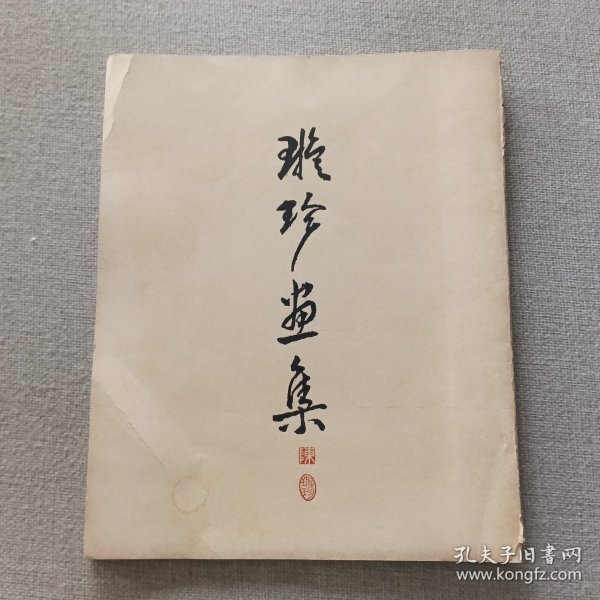 璇珍畫集
陳
璇珍
孔夫子旧書网
www.kongfz.com